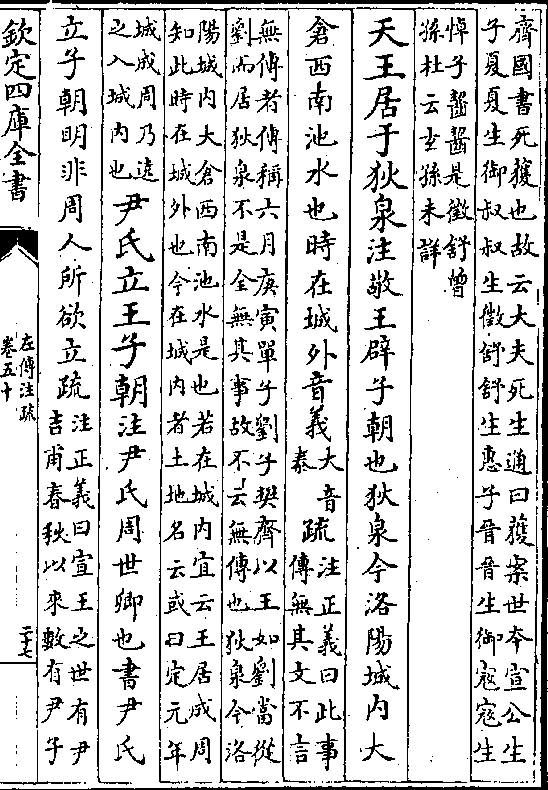 齊國書死獲也故云大夫死生通曰獲案世本宣公生
子夏夏生御叔叔生徵舒舒生惠子晉晉生御寇寇生
悼子齧齧是徵舒曾
孫杜云玄孫未詳
天王居于狄泉注敬王辟子朝也狄泉今洛陽城内大
倉西南池水也時在城外音義大音泰疏注正義曰此事傳無其文不言
無傳者傳稱六月庚寅單子劉子樊齊以王如劉當從
劉而居狄泉不是全無其事故不云無傳也狄泉今洛
陽城内大倉西南池水是也若在城内宜云王居成周
知此時在城外也今在城内者土地名云或曰定元年
城成周乃遶之入城内也尹氏立王子朝注尹氏周世卿也書尹氏
立子朝明非周人所欲立疏注正義曰宣王之世有尹吉甫春秋以來數有尹子
欽定四庫全書
左傳注疏
卷五十
二十七